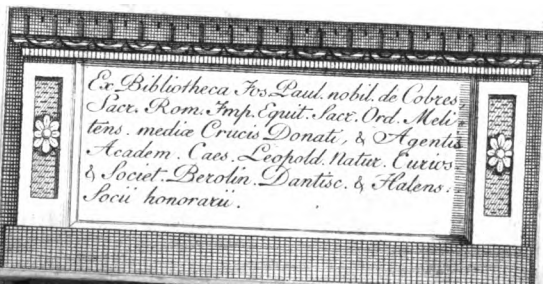 Ex Bibliotheca Jos. Paul. nobil. de Cobres
Sacr. Rom. Imp. Equit. Sacr. Ord. Meli-
tens. mediæ Crucis Donati, & Agentis
Academ. Caes. Leopold. Natur. Curios.
& Societ. Berolin. Dantisc. & Halens.
Socii honorarii.